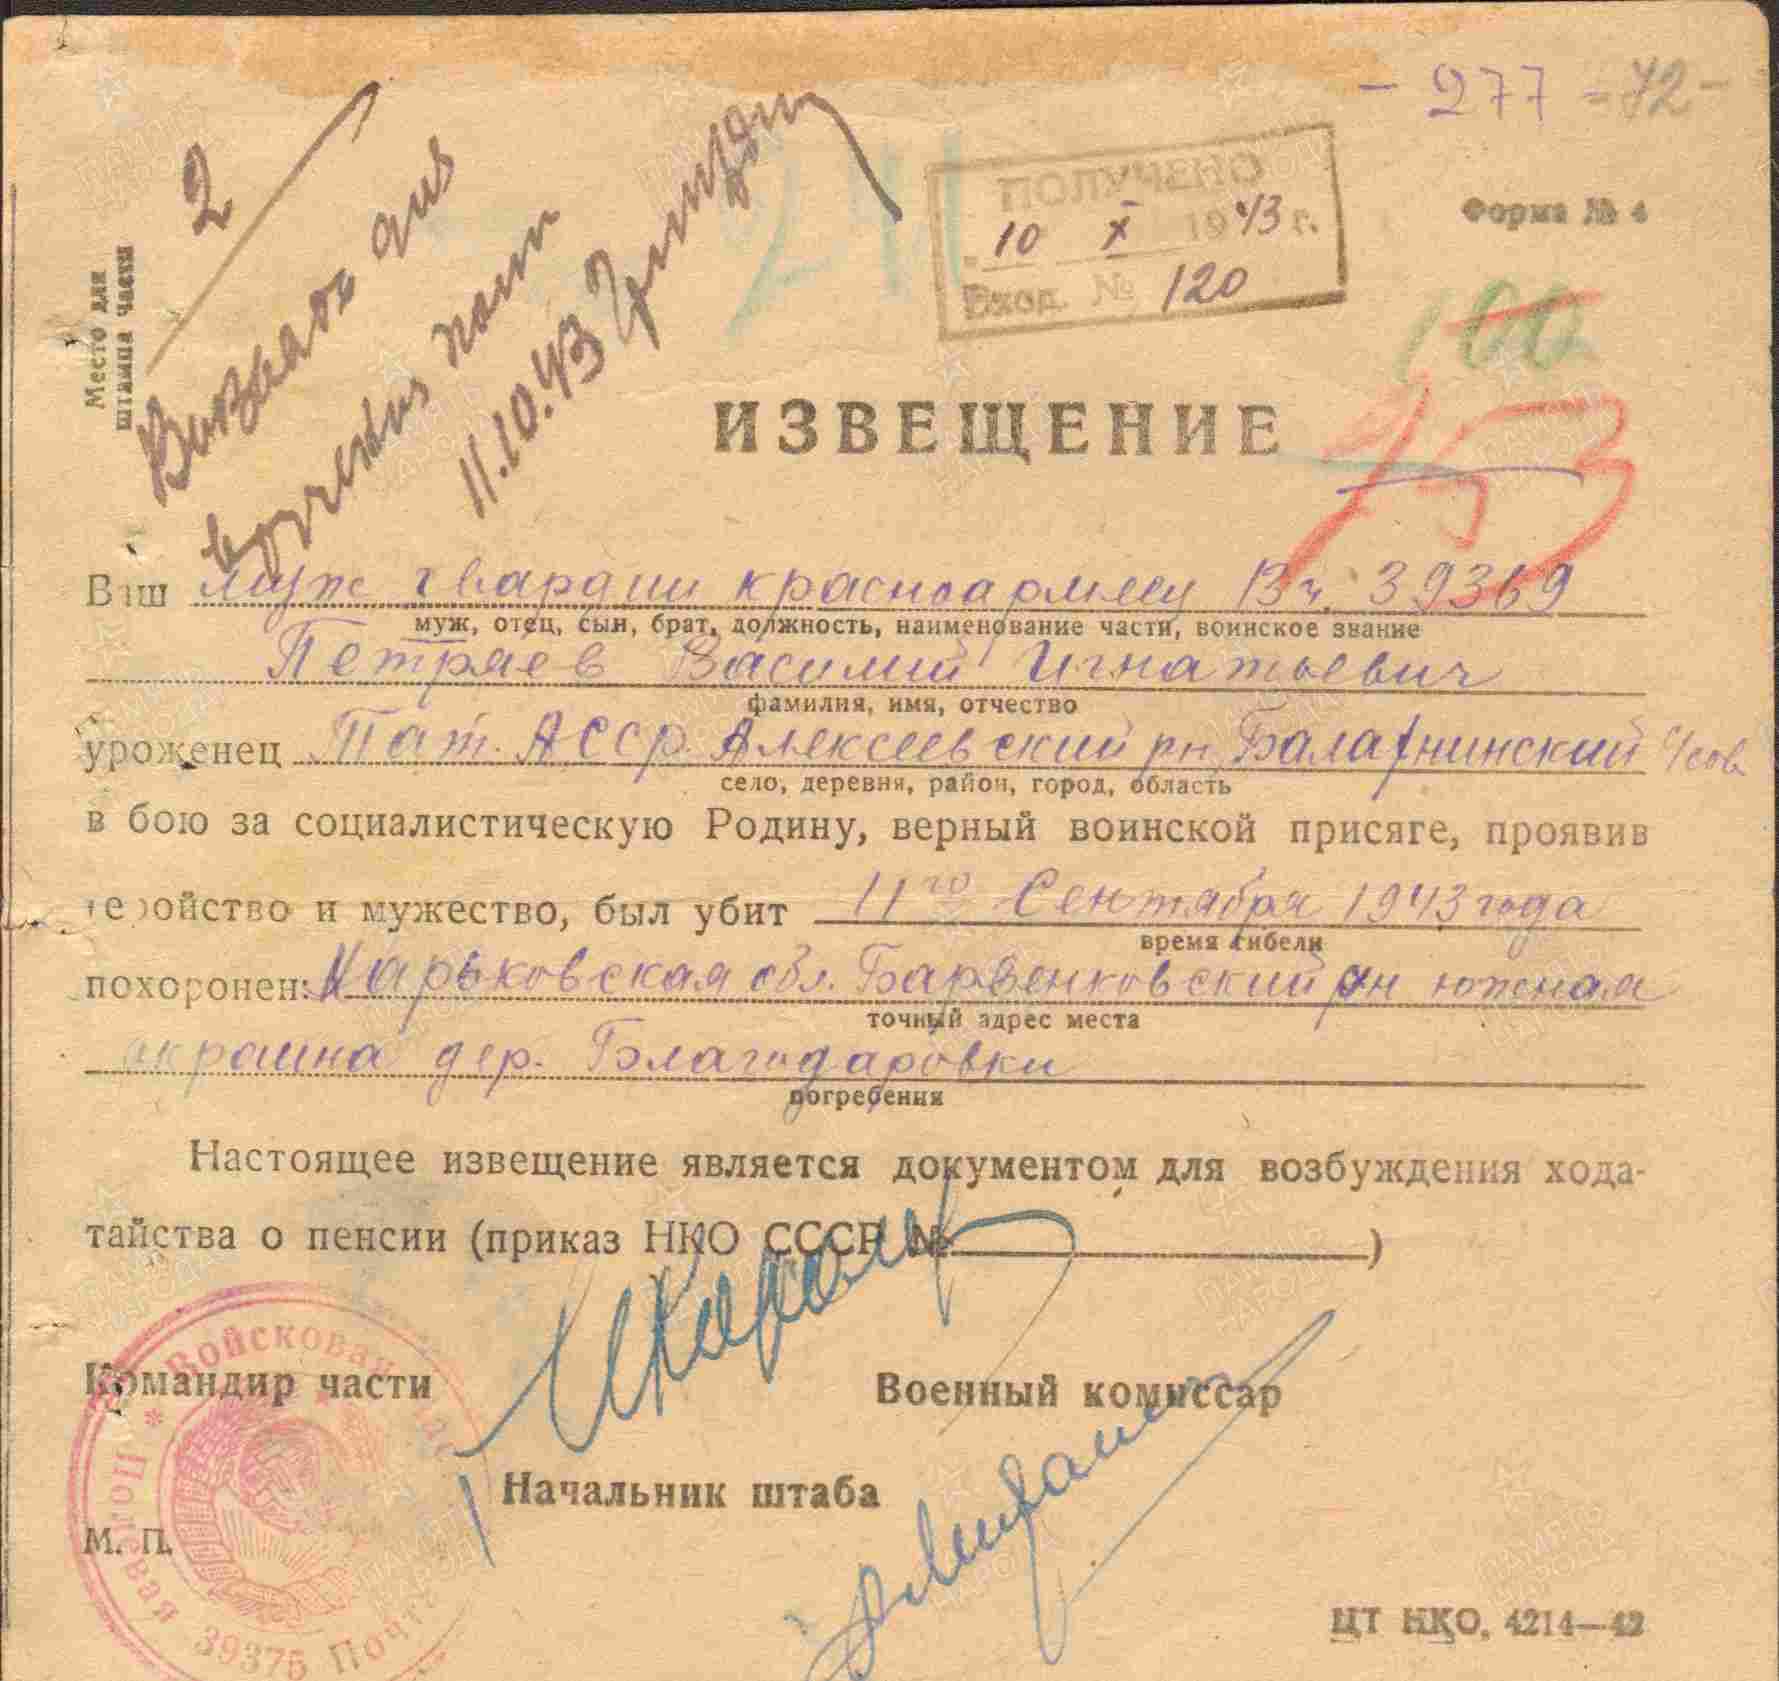 - 277 - 72 -
2
ПОЛУЧЕНО
10 X 1943 г.
Вход. № 120
Форма № 4
Место для
штампа части
11.10.43
100
ИЗВЕЩЕНИЕ
153
Ваш муж гвардии красноармеец Вч. 39369
муж, отец, сын, брат, должность, наименование части, воинское звание
Петряев Василий Игнатьевич
фамилия, имя, отчество
уроженец Тат. АССР. Алексеевский рн Балахнинский с/сов
село, деревня, район, город, область
в бою за социалистическую Родину, верный воинской присяге, проявив
геройство и мужество, был убит 11го Сентября 1943 года
время гибели
похоронен: Харьковская обл. Барвенковский рн южная
точный адрес места
окраина дер. Благодаровки
погребения
Настоящее извещение является документом для возбуждения хода-
тайства о пенсии (приказ НКО СССР № )
Командир части
Военный комиссар
Начальник штаба
М. П.
Войсковая
Полевая 39375 Почта
ЦТ НКО. 4214—42